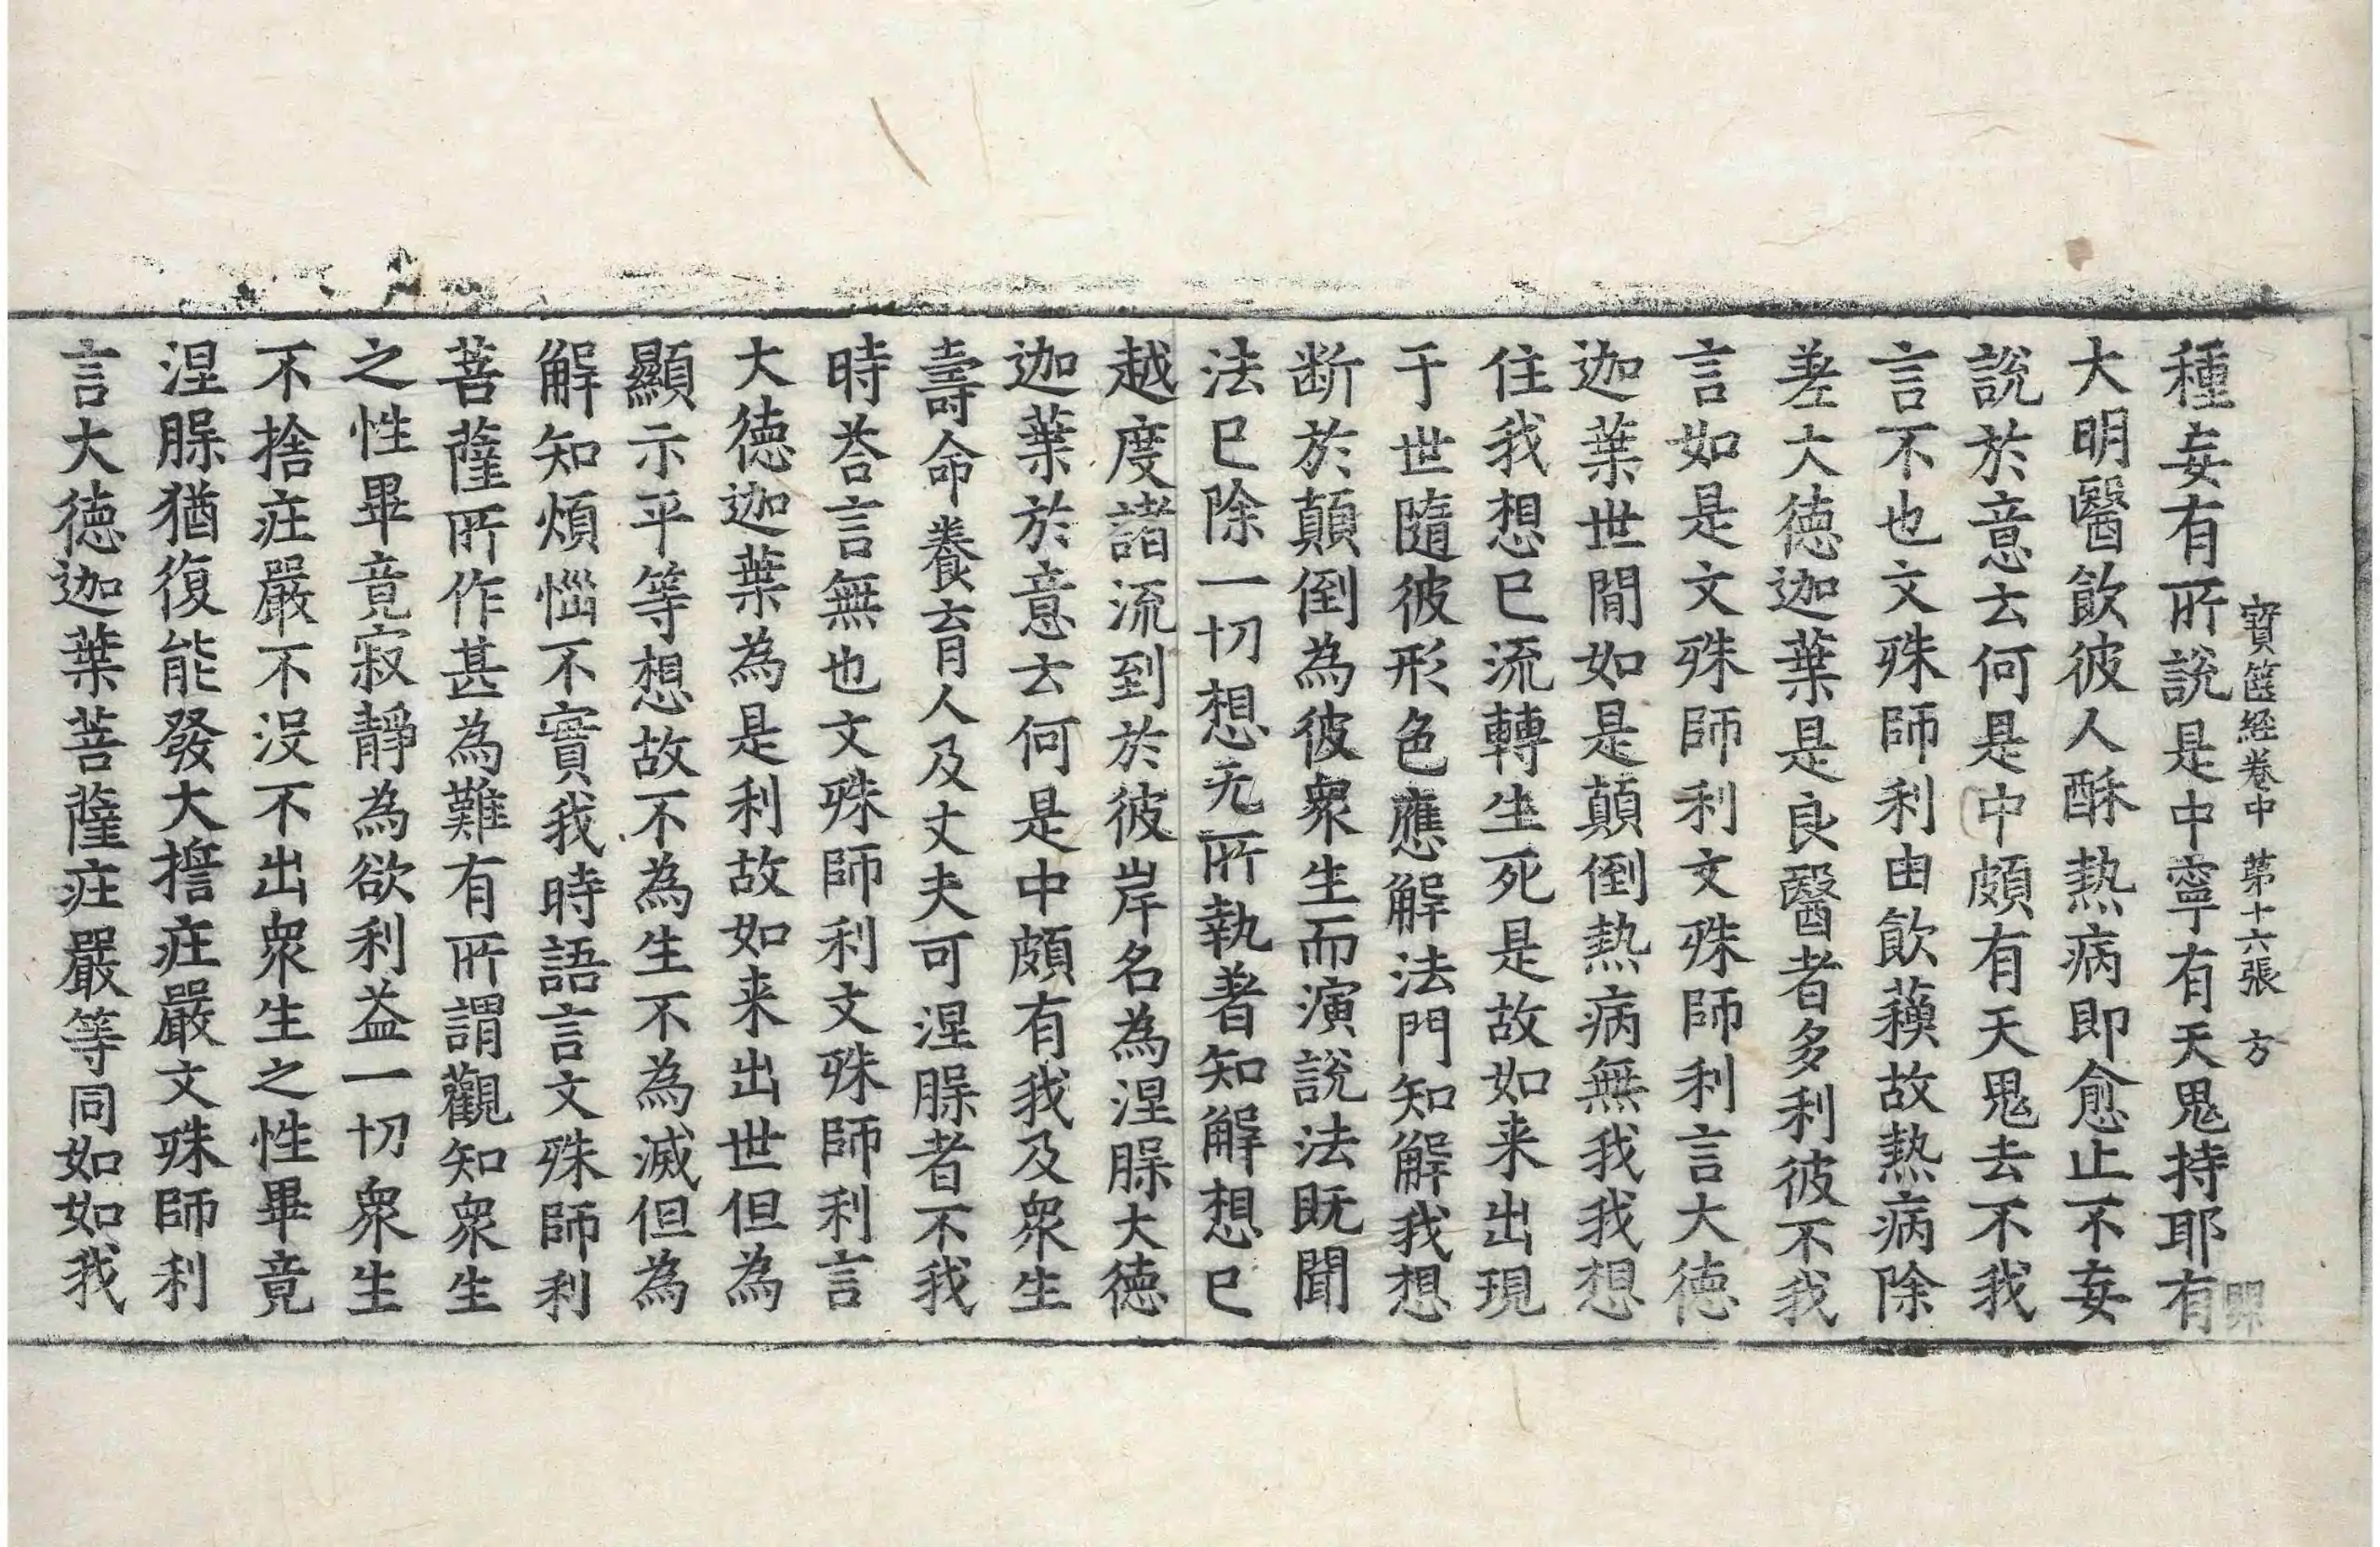 寳篋経卷中 苐十六張 方
種妄有所說是中寧有天鬼持耶有
大明醫飲彼人酥熱病即愈止不妄
說於意云何是中頗有天鬼去不我
言不也文殊師利由飲蘓故熱病除
差大徳迦葉是良醫者多利彼不我
言如是文殊師利文殊師利言大徳
迦葉世間如是顛倒熱病無我我想
住我想已流轉生死是故如来出現
于世隨彼形色應解法門知解我想
断於顛倒為彼衆生而演說法既聞
法已除一切想无所執著知解想已
越度諸流到於彼岸名為涅槃大徳
迦葉於意云何是中頗有我及衆生
壽命養育人及丈夫可涅槃者不我
時荅言無也文殊師利文殊師利言
大徳迦葉為是利故如来出世但為
顯示平等想故不為生不為滅但為
解知煩惱不實我時語言文殊師利
菩薩所作甚為難有所謂觀知衆生
之性畢竟寂靜為欲利益一切衆生
不捨莊嚴不没不出衆生之性畢竟
涅槃猶復能發大擔莊嚴文殊師利
言大徳迦葉菩薩莊嚴等同如如我